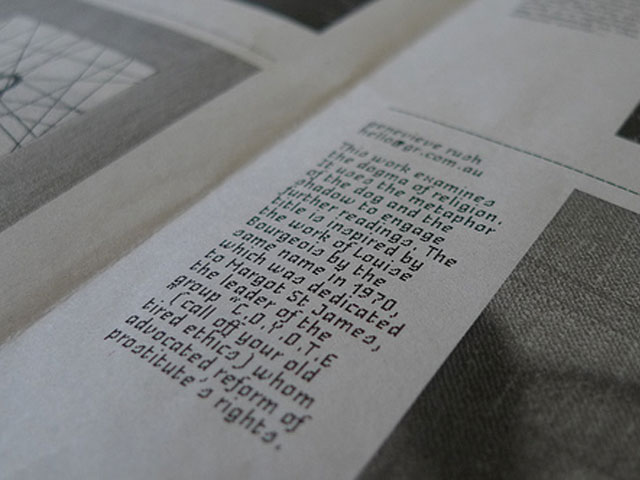 genevieve rush
hello@gr.com.au
This work examines
the dogma of religion.
It uses the metaphor
of the dog and the
shadow to engage
further readings. The
title is inspired by
the work of Louise
Bourgeois by the
same name in 1970,
which was dedicated
to Margot St James,
the leader of the
group "C.O.Y.O.T.E
"(call off your old
tired ethics) whom
advocated reform of
prostitute's rights.